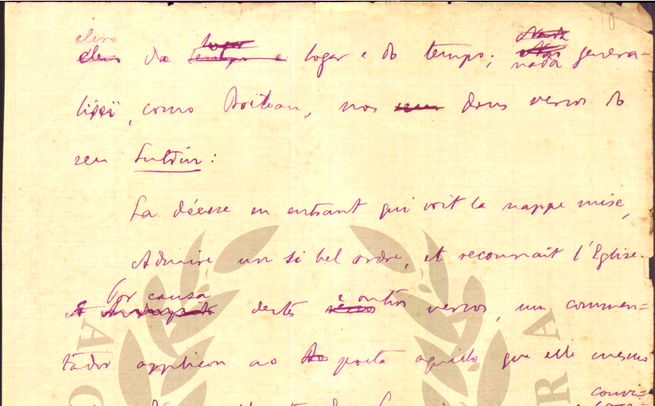 clero
do logar e do tempo; nada genera-
lisei, como Boileau, nos dous versos do
seu Lutrin:
La déesse en entrant qui voit la nappe mise,
Admire un si bel ordre, et reconnait l'Eglise.
Por causa destes e outros versos, um commen-
tador applicou ao poeta aquillo que elle mesmo
convi-